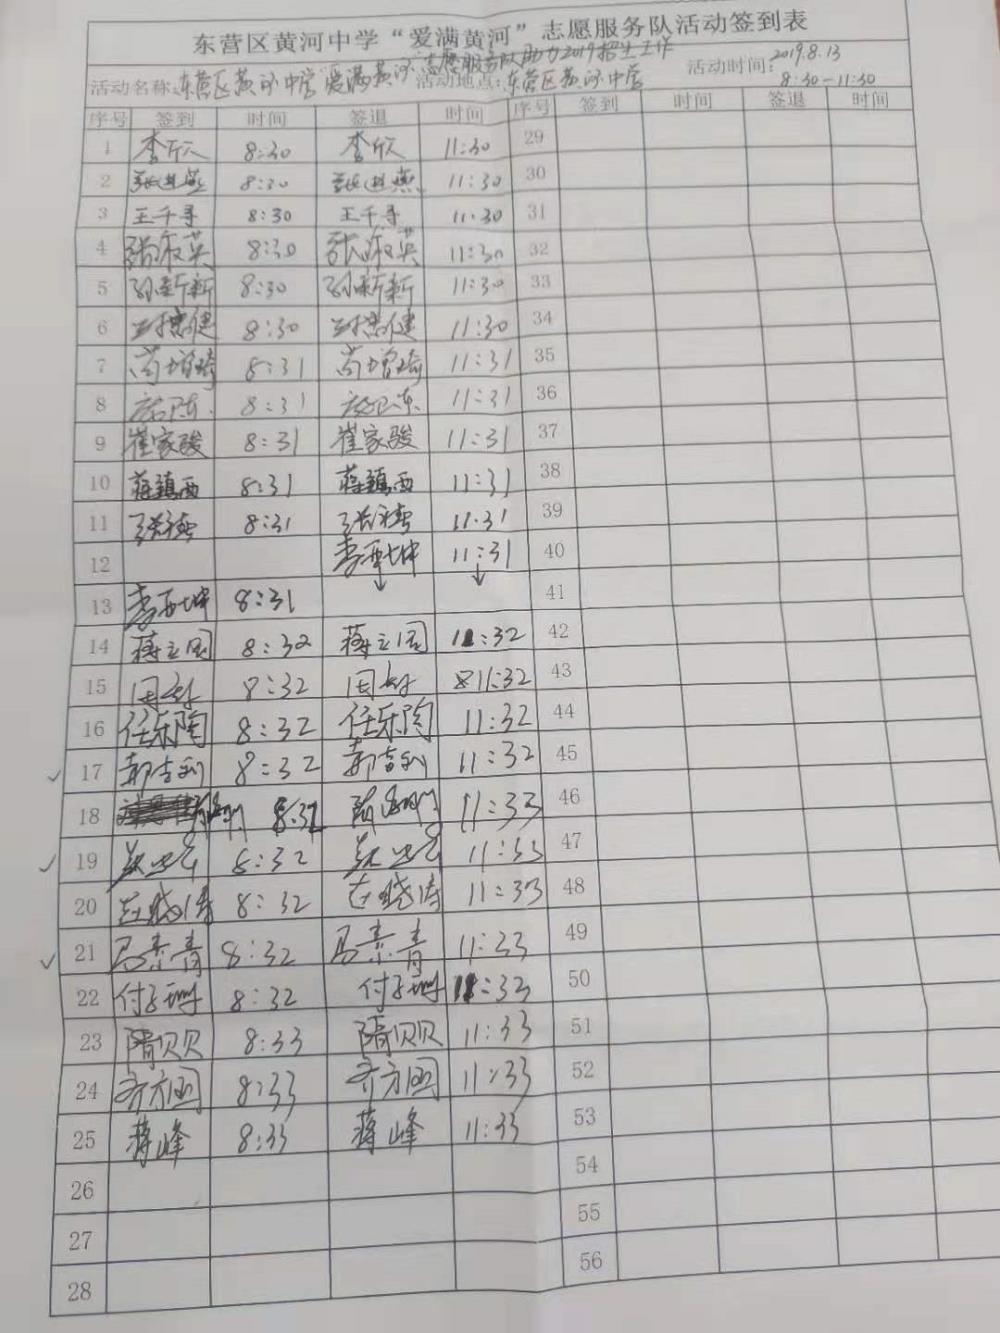 东营区黄河中学“爱满黄河”志愿服务队活动签到表
活动名称:东营区黄河中学“爱满黄河”志愿服务队助力2019招生工作 活动地点:东营区黄河中学 活动时间:2019.8.13 8:30-11:30
序号 签到 时间 签退 时间 序号 签到 时间 签退 时间
1 李欣 8:30 李欣 11:30 29
2 8:30 11:30 30
3 王千寻 8:30 王千寻 11:30 31
4 张淑英 8:30 张淑英 11:30 32
5 孙新新 8:30 孙新新 11:30 33
6 8:30 11:30 34
7 尚增琦 8:31 尚增琦 11:31 35
8 8:31 11:31 36
9 崔家骏 8:31 崔家骏 11:31 37
10 蒋镇西 8:31 蒋镇西 11:31 38
11 8:31 11:31 39
12 李亚坤 11:31 40
13 李亚坤 8:31 41
14 蒋立国 8:32 蒋立国 11:32 42
15 8:32 11:32 43
16 任乐陶 8:32 任乐陶 11:32 44
17 郭吉利 8:32 郭吉利 11:32 45
18 8:32 11:33 46
19 8:32 11:33 47
20 8:32 11:33 48
21 马素青 8:32 马素青 11:33 49
22 付子珊 8:32 付子珊 11:33 50
23 隋贝贝 8:33 隋贝贝 11:33 51
24 齐方园 8:33 齐方园 11:33 52
25 蒋峰 8:33 蒋峰 11:33 53
26 54
27 55
28 56